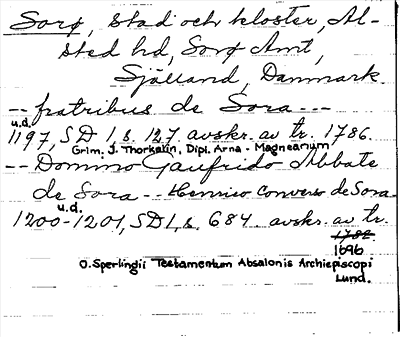 Sorø, stad och kloster, Al-
sted hd, Sorø Amt,
Sjælland, Danmark.
-- fratribus de Sora ---
u.d.
1197, SD 1, s. 127. avskr. av tr. 1786.
Grim. J. Thorkelin, Dipl. Arna-Magnæanum
-- Domino Gaufrido Abbate
de Sora -- Henrico converso de Sora
u.d.
1200-1201, SD 1, s. 684 avskr. av tr.
1782
1696
O. Sperlingii Testamentum Absalonis Archiepiscopi
Lund.